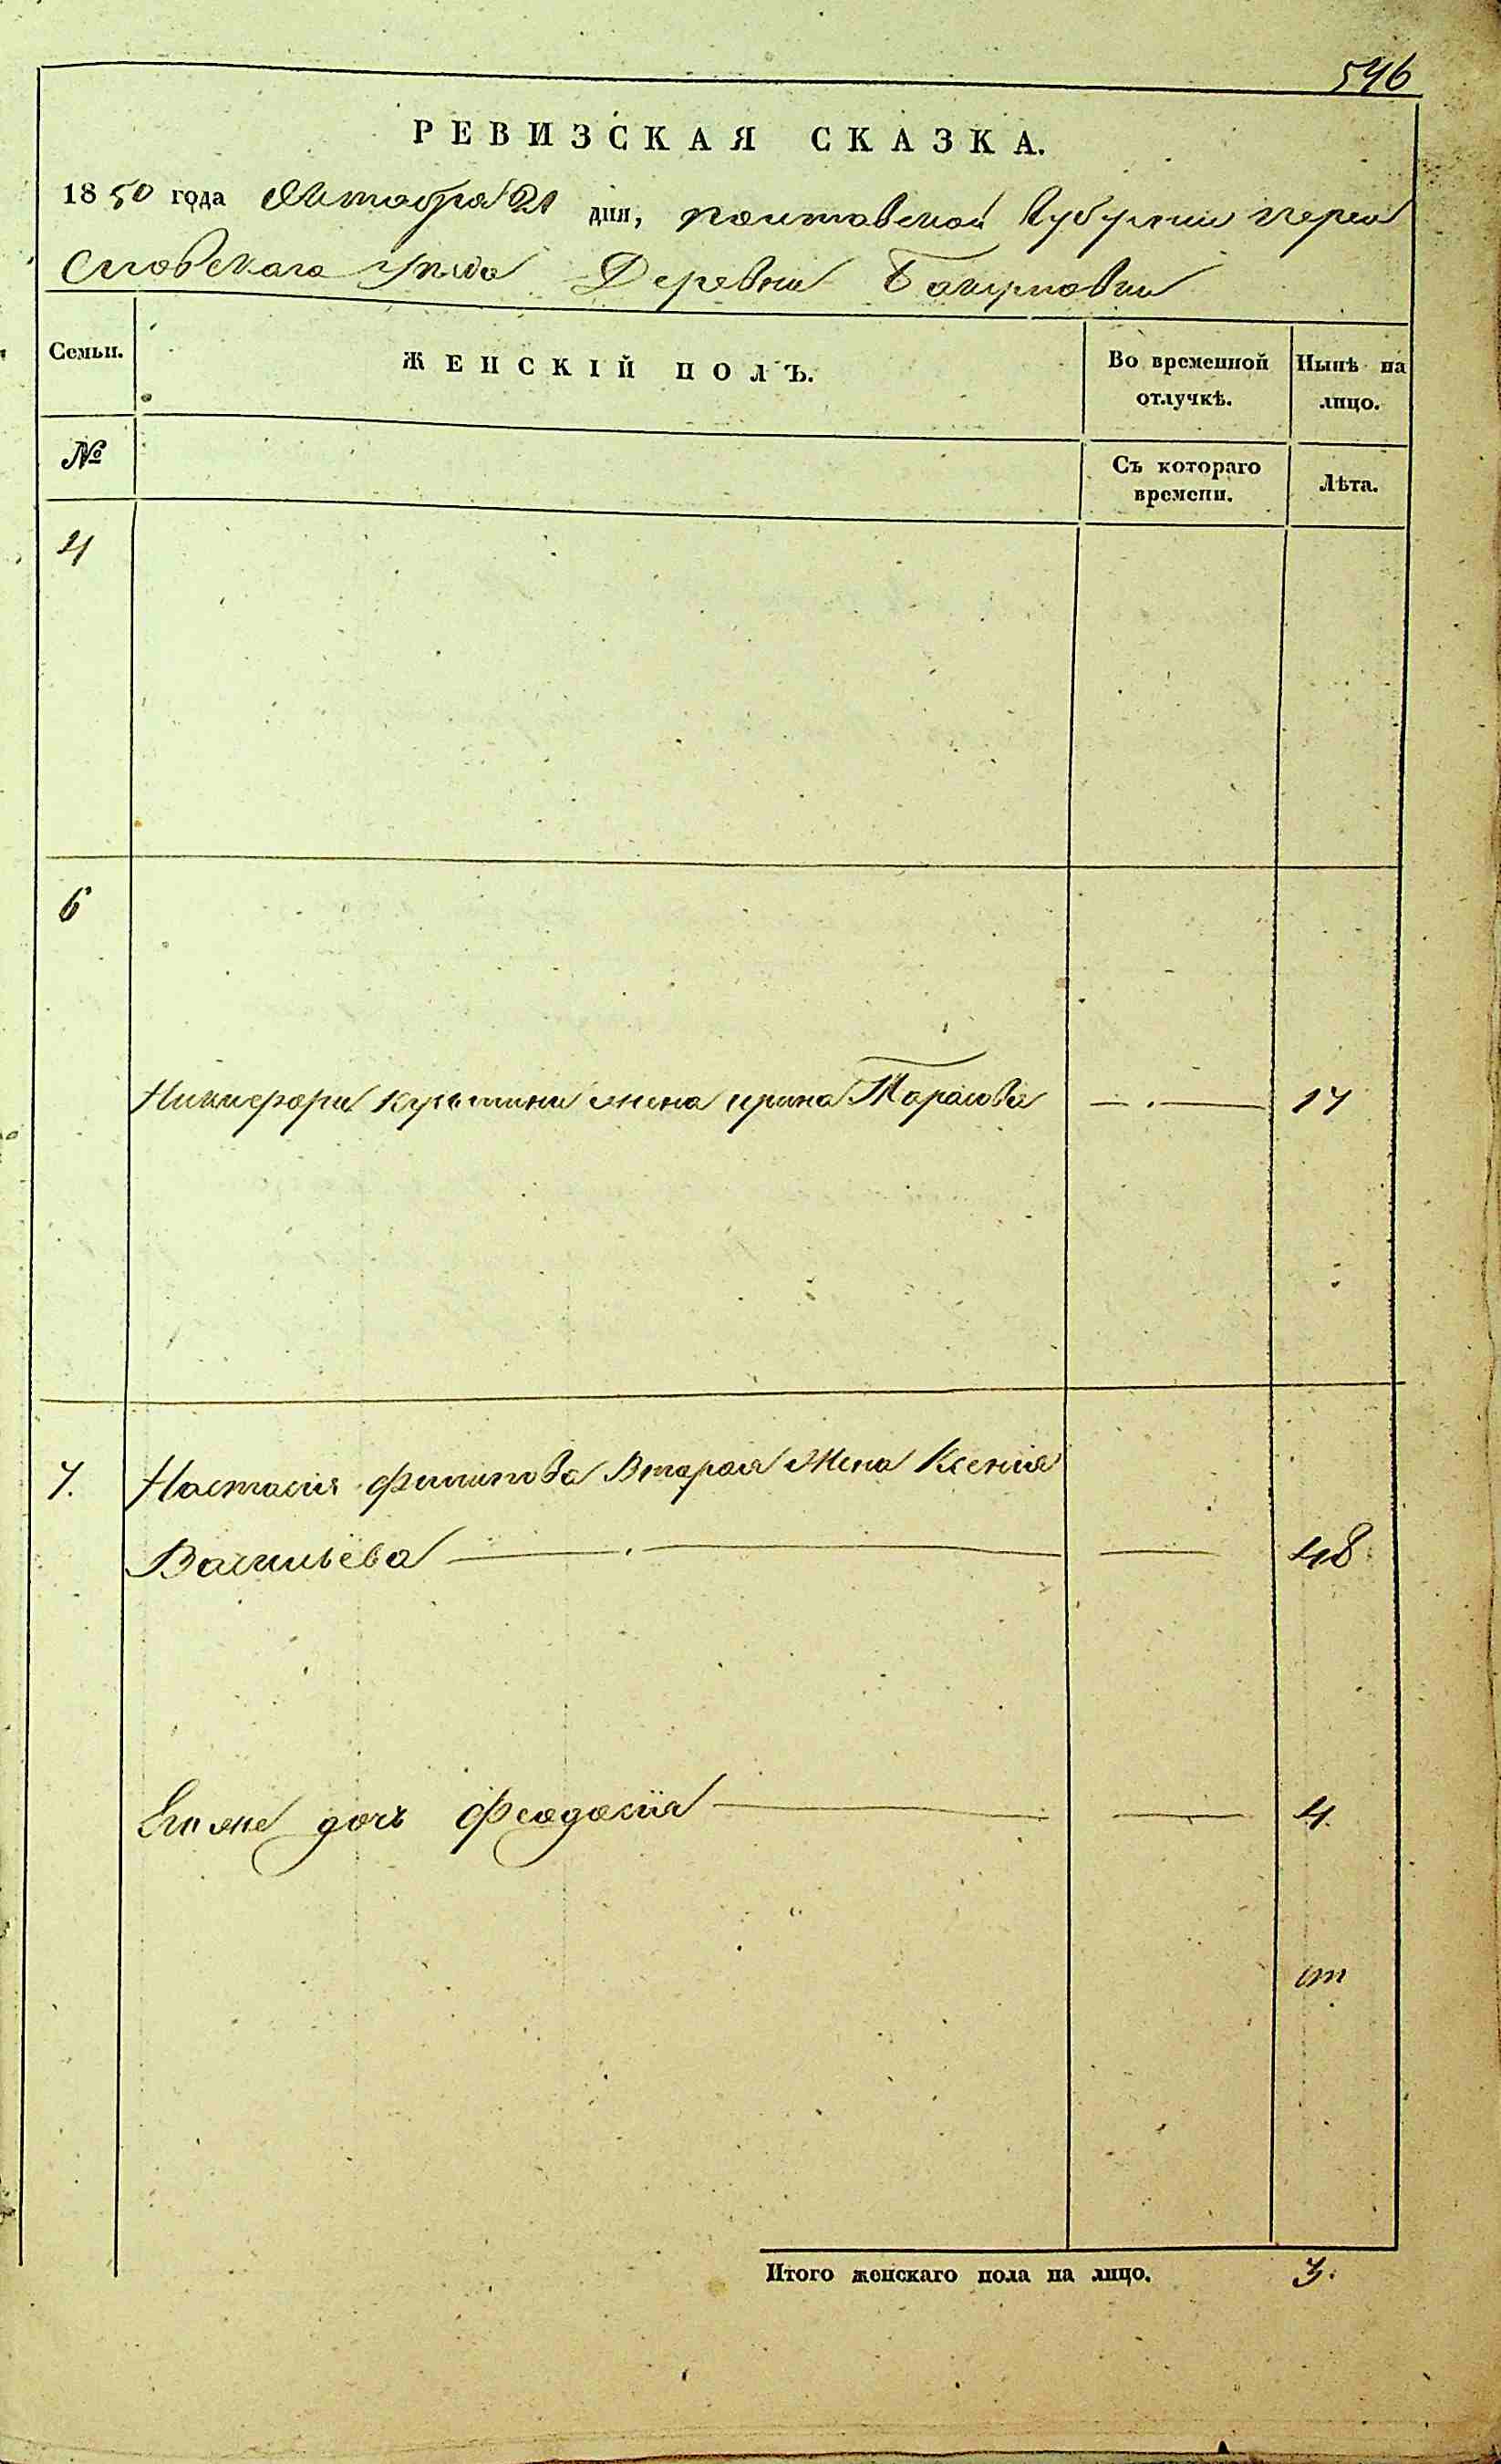 546
РЕВИЗСКАЯ СКАЗКА.
1850 года Октября 21 дня, полтавской Губернии перея
словскаго уезда Деревни
Семьи. ЖЕНСКІЙ ПОЛЪ. Во временной отлучкѣ. Нынѣ на лицо.
№ Съ котораго времени. Лѣта.
4
6
жена ирина Тарасова 17
7. Настасія Филипова Вторая Жена Ксенія
Васильева 48
Егоже дочь Феодосія 4
3.
Итого женскаго пола на лицо. 3.